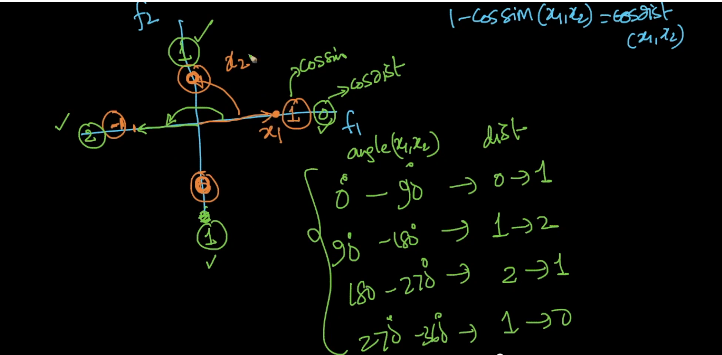 f2
1 - cossim(x1,x2) = cosdist
(x1,x2)
1
0
x2
cossim
cosdist
2
-1
x1
1
0
f1
0
1
angle(x1,x2) dist
0° - 90° → 0→1
90° - 180° → 1→2
180 - 270° → 2→1
270° - 360° → 1→0